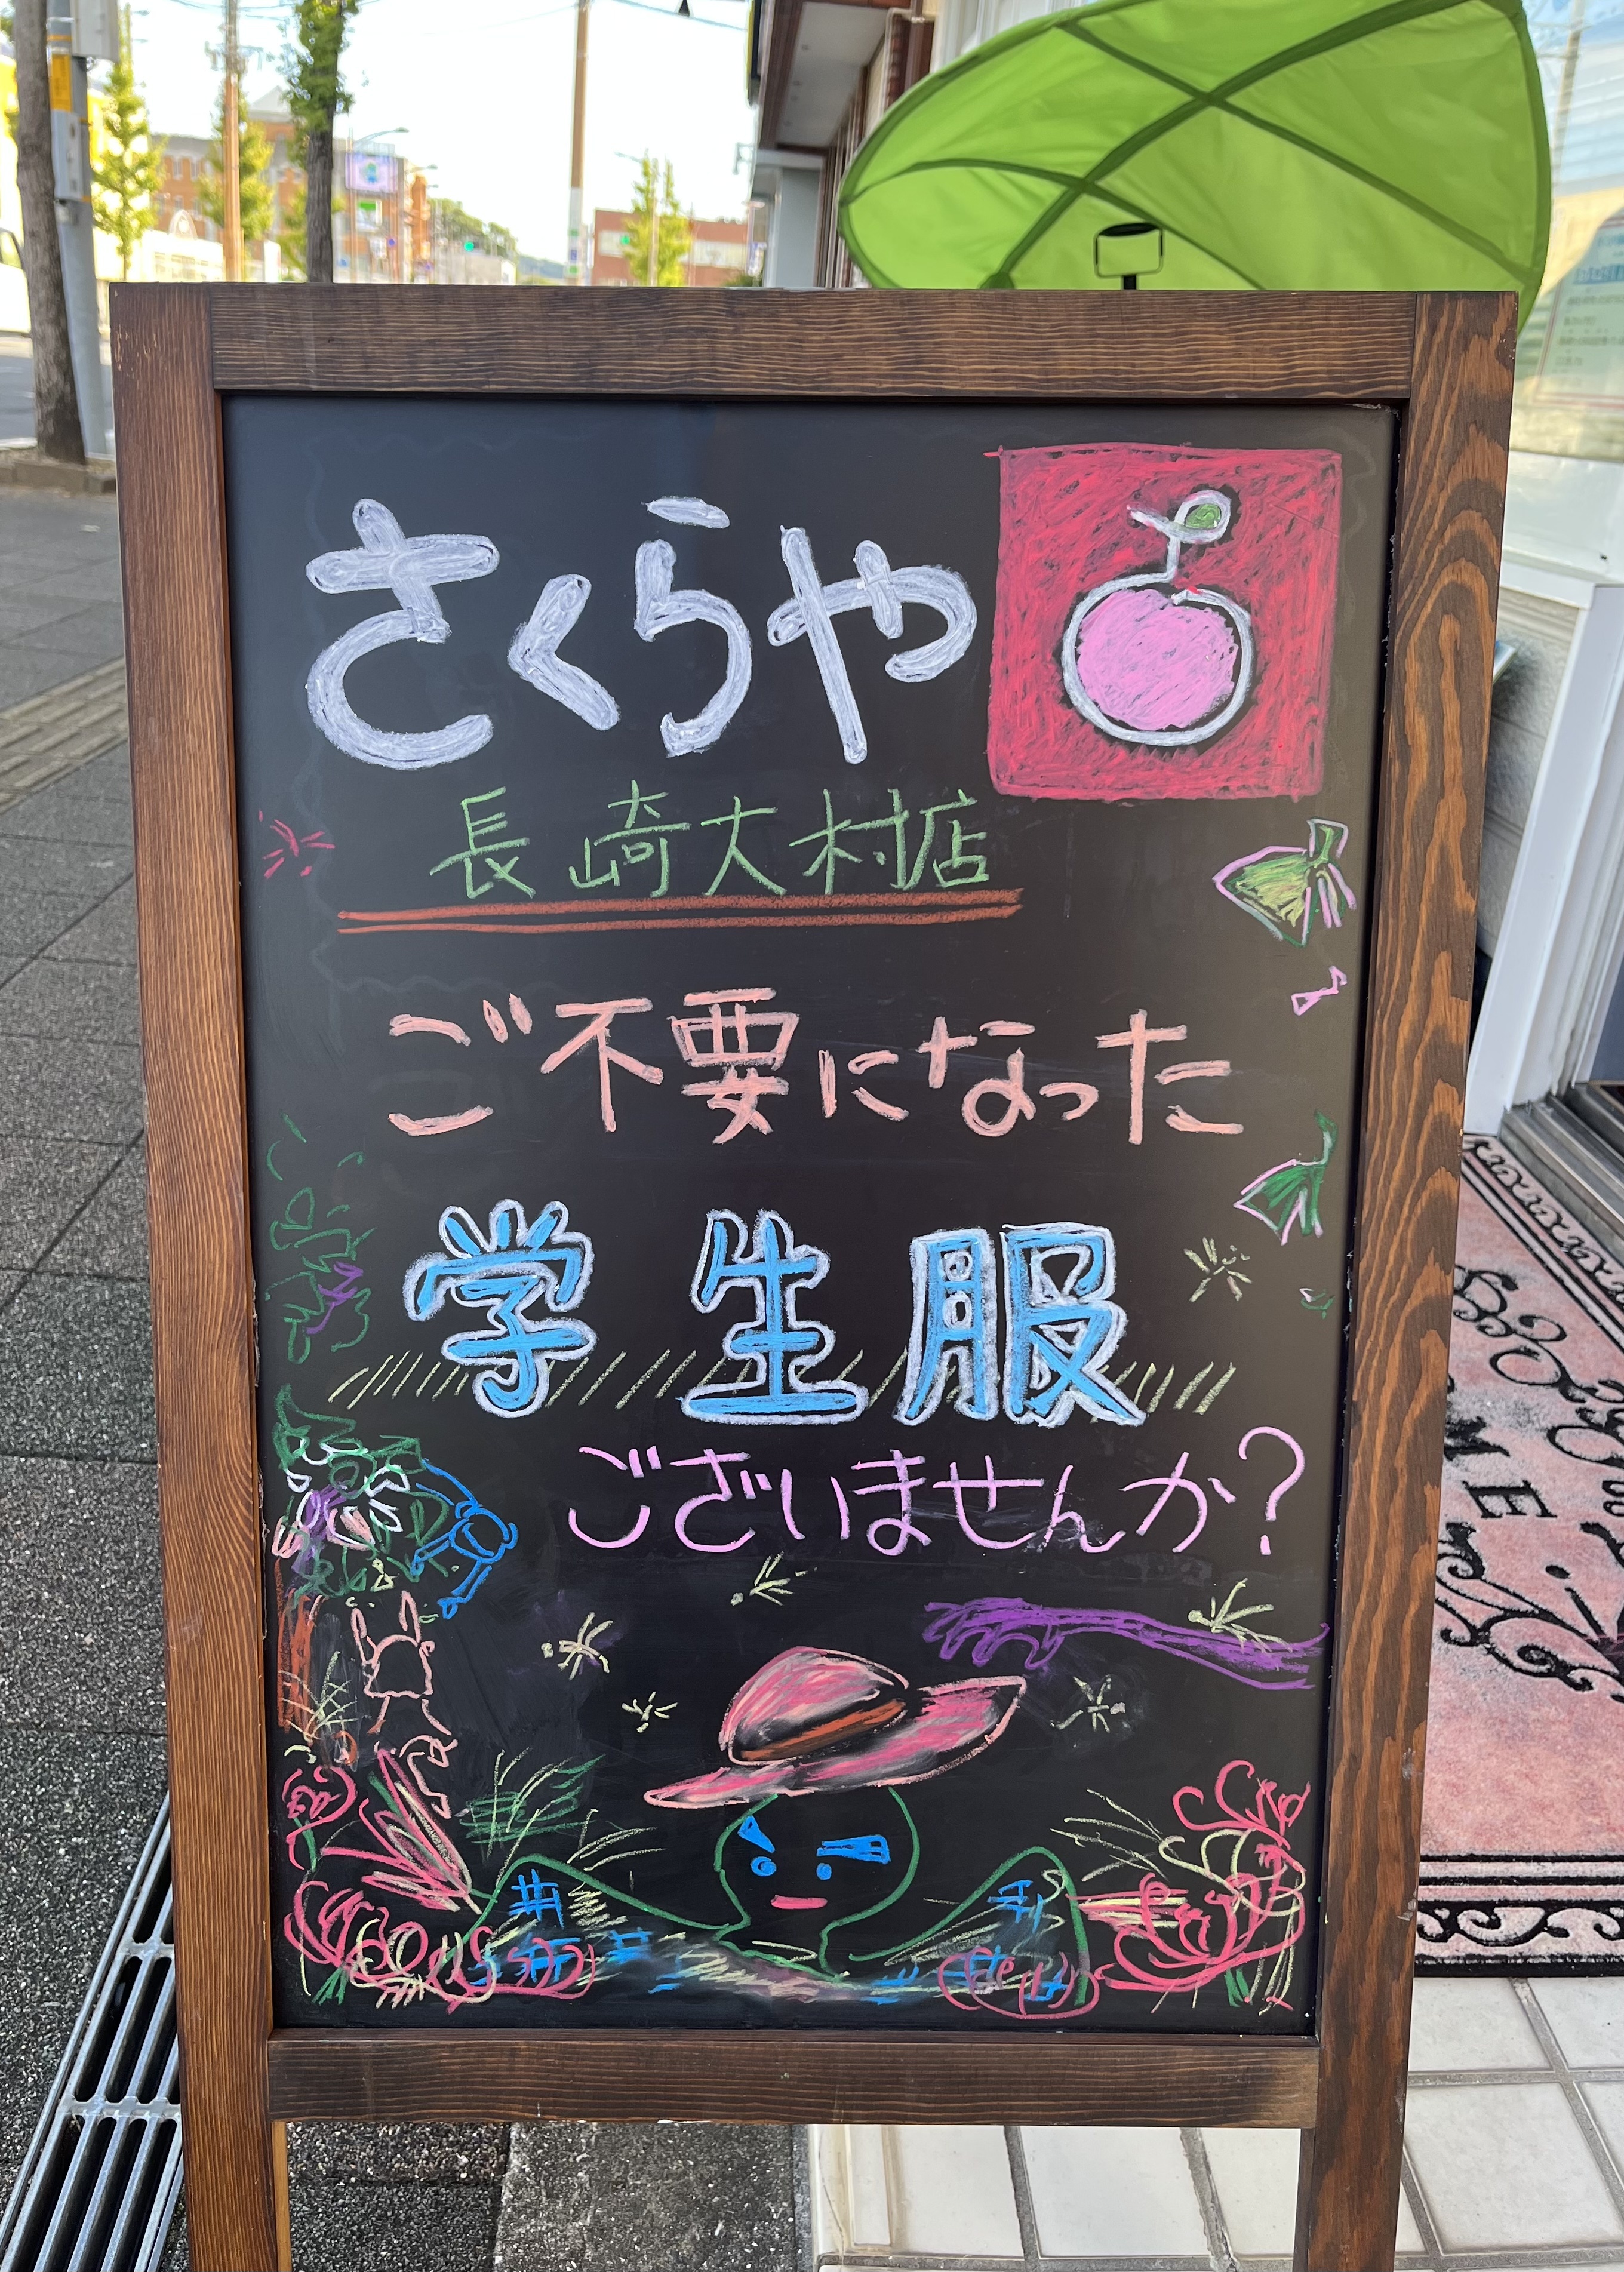 さくらや
長崎大村店
ご不要になった
学生服
ございませんか?